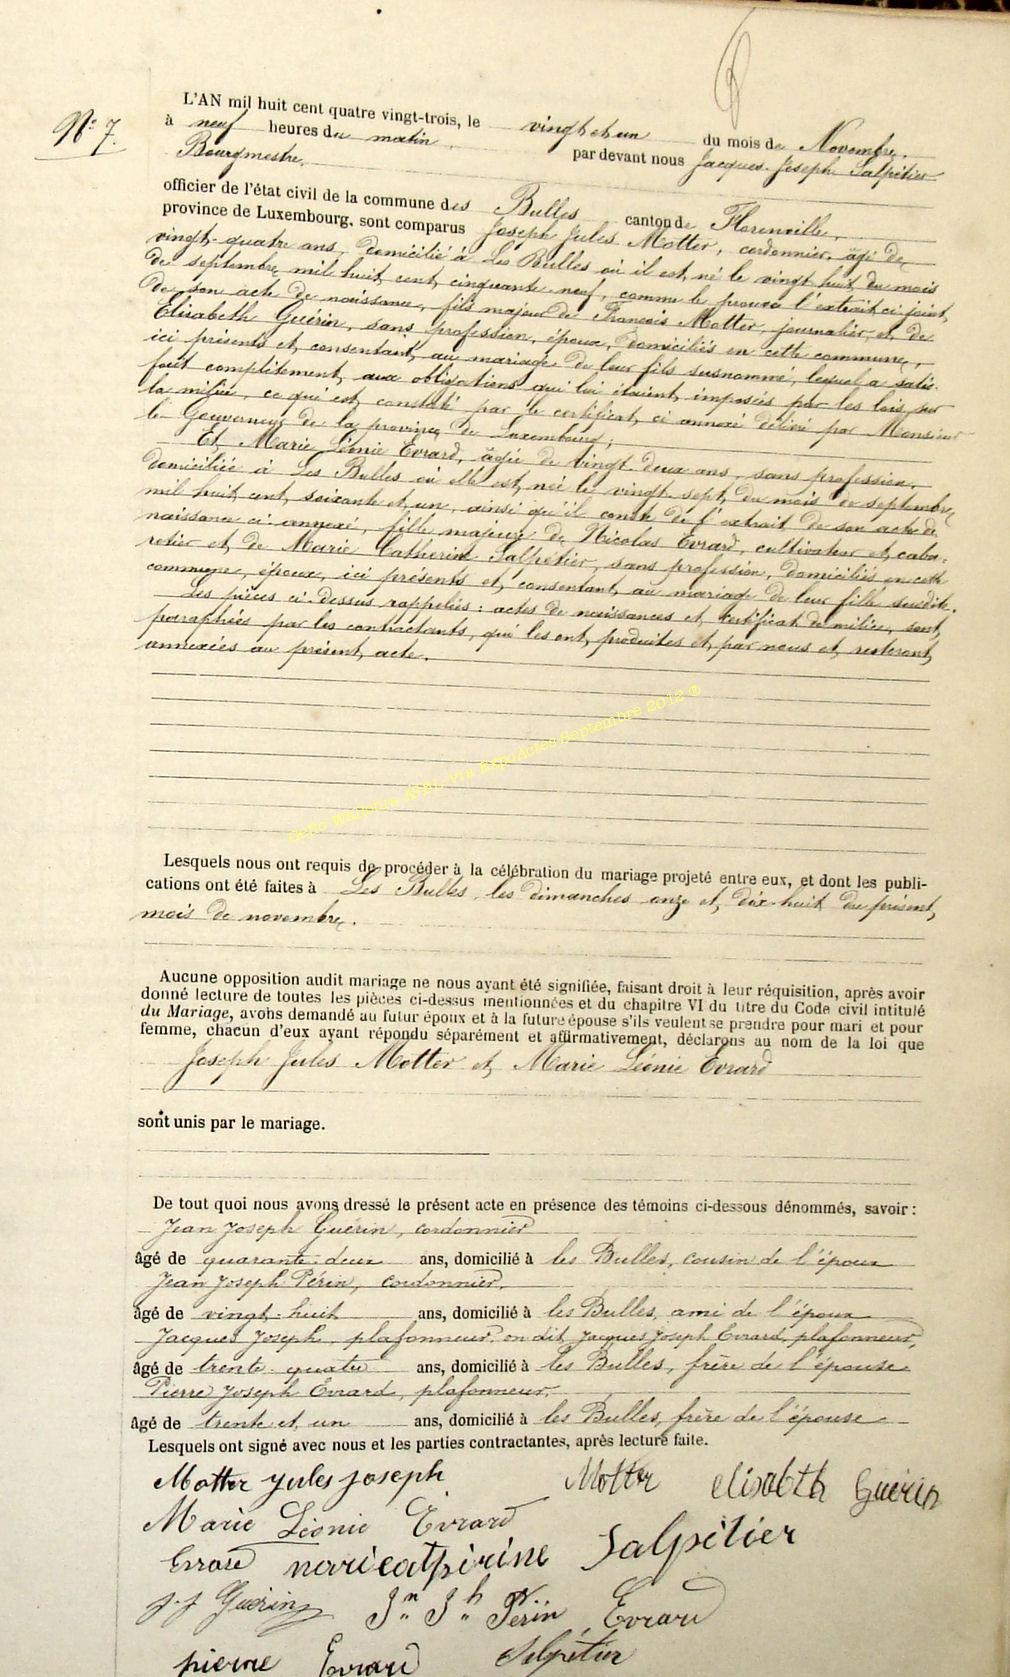 6
N° 7.
L'AN mil huit cent quatre vingt-trois, le vingt et un du mois de Novembre,
à neuf heures du matin, par devant nous Jacques-Joseph Salpétier
Bourgmestre,
officier de l'état civil de la commune des Bulles canton de Florenville,
province de Luxembourg, sont comparus Joseph Jules Motter, cordonnier, âgé de
vingt-quatre ans, domicilié à Les Bulles où il est né le vingt huit du mois
de septembre mil huit cent cinquante neuf, comme le prouve l'extrait ci-joint,
de son acte de naissance, fils majeur de François Motter, journalier et de
Elisabeth Guérin, sans profession, époux, domiciliés en cette commune,
ici présents et consentant au mariage de leur fils susnommé, lequel a satis-
fait complètement aux obligations qui lui étaient imposées par les lois sur
la milice, ce qui est constaté par le certificat ci annexé délivré par Monsieur
le Gouverneur de la province de Luxembourg;
Et Marie Léonie Evrard, âgée de vingt-deux ans, sans profession,
domiciliée à Les Bulles où elle est née le vingt-sept du mois de septembre
mil huit cent soixante et un, ainsi qu'il conste de l'extrait de son acte de
naissance ci-annexé, fille majeure de Nicolas Evrard, cultivateur et caba-
retier et de Marie Catherine Salpétier, sans profession, domiciliés en cette
commune, époux, ici présents et consentant au mariage de leur fille susdite.
Les pièces ci-dessus rappelées: actes de naissances et certificat de milice, sont
paraphées par les contractants, qui les ont produites et par nous et resteront
annexées au présent acte.
Septembre 2012 ®
Lesquels nous ont requis de procéder à la célébration du mariage projeté entre eux, et dont les publi-
cations ont été faites à Les Bulles, les dimanches onze et dix-huit du présent
mois de novembre.
Aucune opposition audit mariage ne nous ayant été signifiée, faisant droit à leur réquisition, après avoir
donné lecture de toutes les pièces ci-dessus mentionnées et du chapitre VI du titre du Code civil intitulé
du Mariage, avons demandé au futur époux et à la future épouse s'ils veulent se prendre pour mari et pour
femme, chacun d'eux ayant répondu séparément et affirmativement, déclarons au nom de la loi que
Joseph Jules Motter et Marie Léonie Evrard
sont unis par le mariage.
De tout quoi nous avons dressé le présent acte en présence des témoins ci-dessous dénommés, savoir:
Jean Joseph Guérin, cordonnier
âgé de quarante-deux ans, domicilié à les Bulles, cousin de l'époux
Jean Joseph Périn, cordonnier,
âgé de vingt-huit ans, domicilié à les Bulles, ami de l'époux
Jacques Joseph, plafonneur, on dit Jacques Joseph Evrard, plafonneur,
âgé de trente-quatre ans, domicilié à les Bulles, frère de l'épouse
Pierre Joseph Evrard, plafonneur,
âgé de trente et un ans, domicilié à les Bulles, frère de l'épouse
Lesquels ont signé avec nous et les parties contractantes, après lecture faite.
Motter jules joseph Motter elisabeth Guérin
Marie Léonie Evrard
Evrard mariecatherine Salpétier
J-J Guérin Jn Jh Périn Evrard
pierre Evrard Salpétier